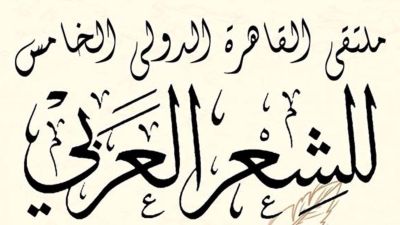 ملتقى القاهرة الدولى الخامس
للشِعْر العَرَبْي